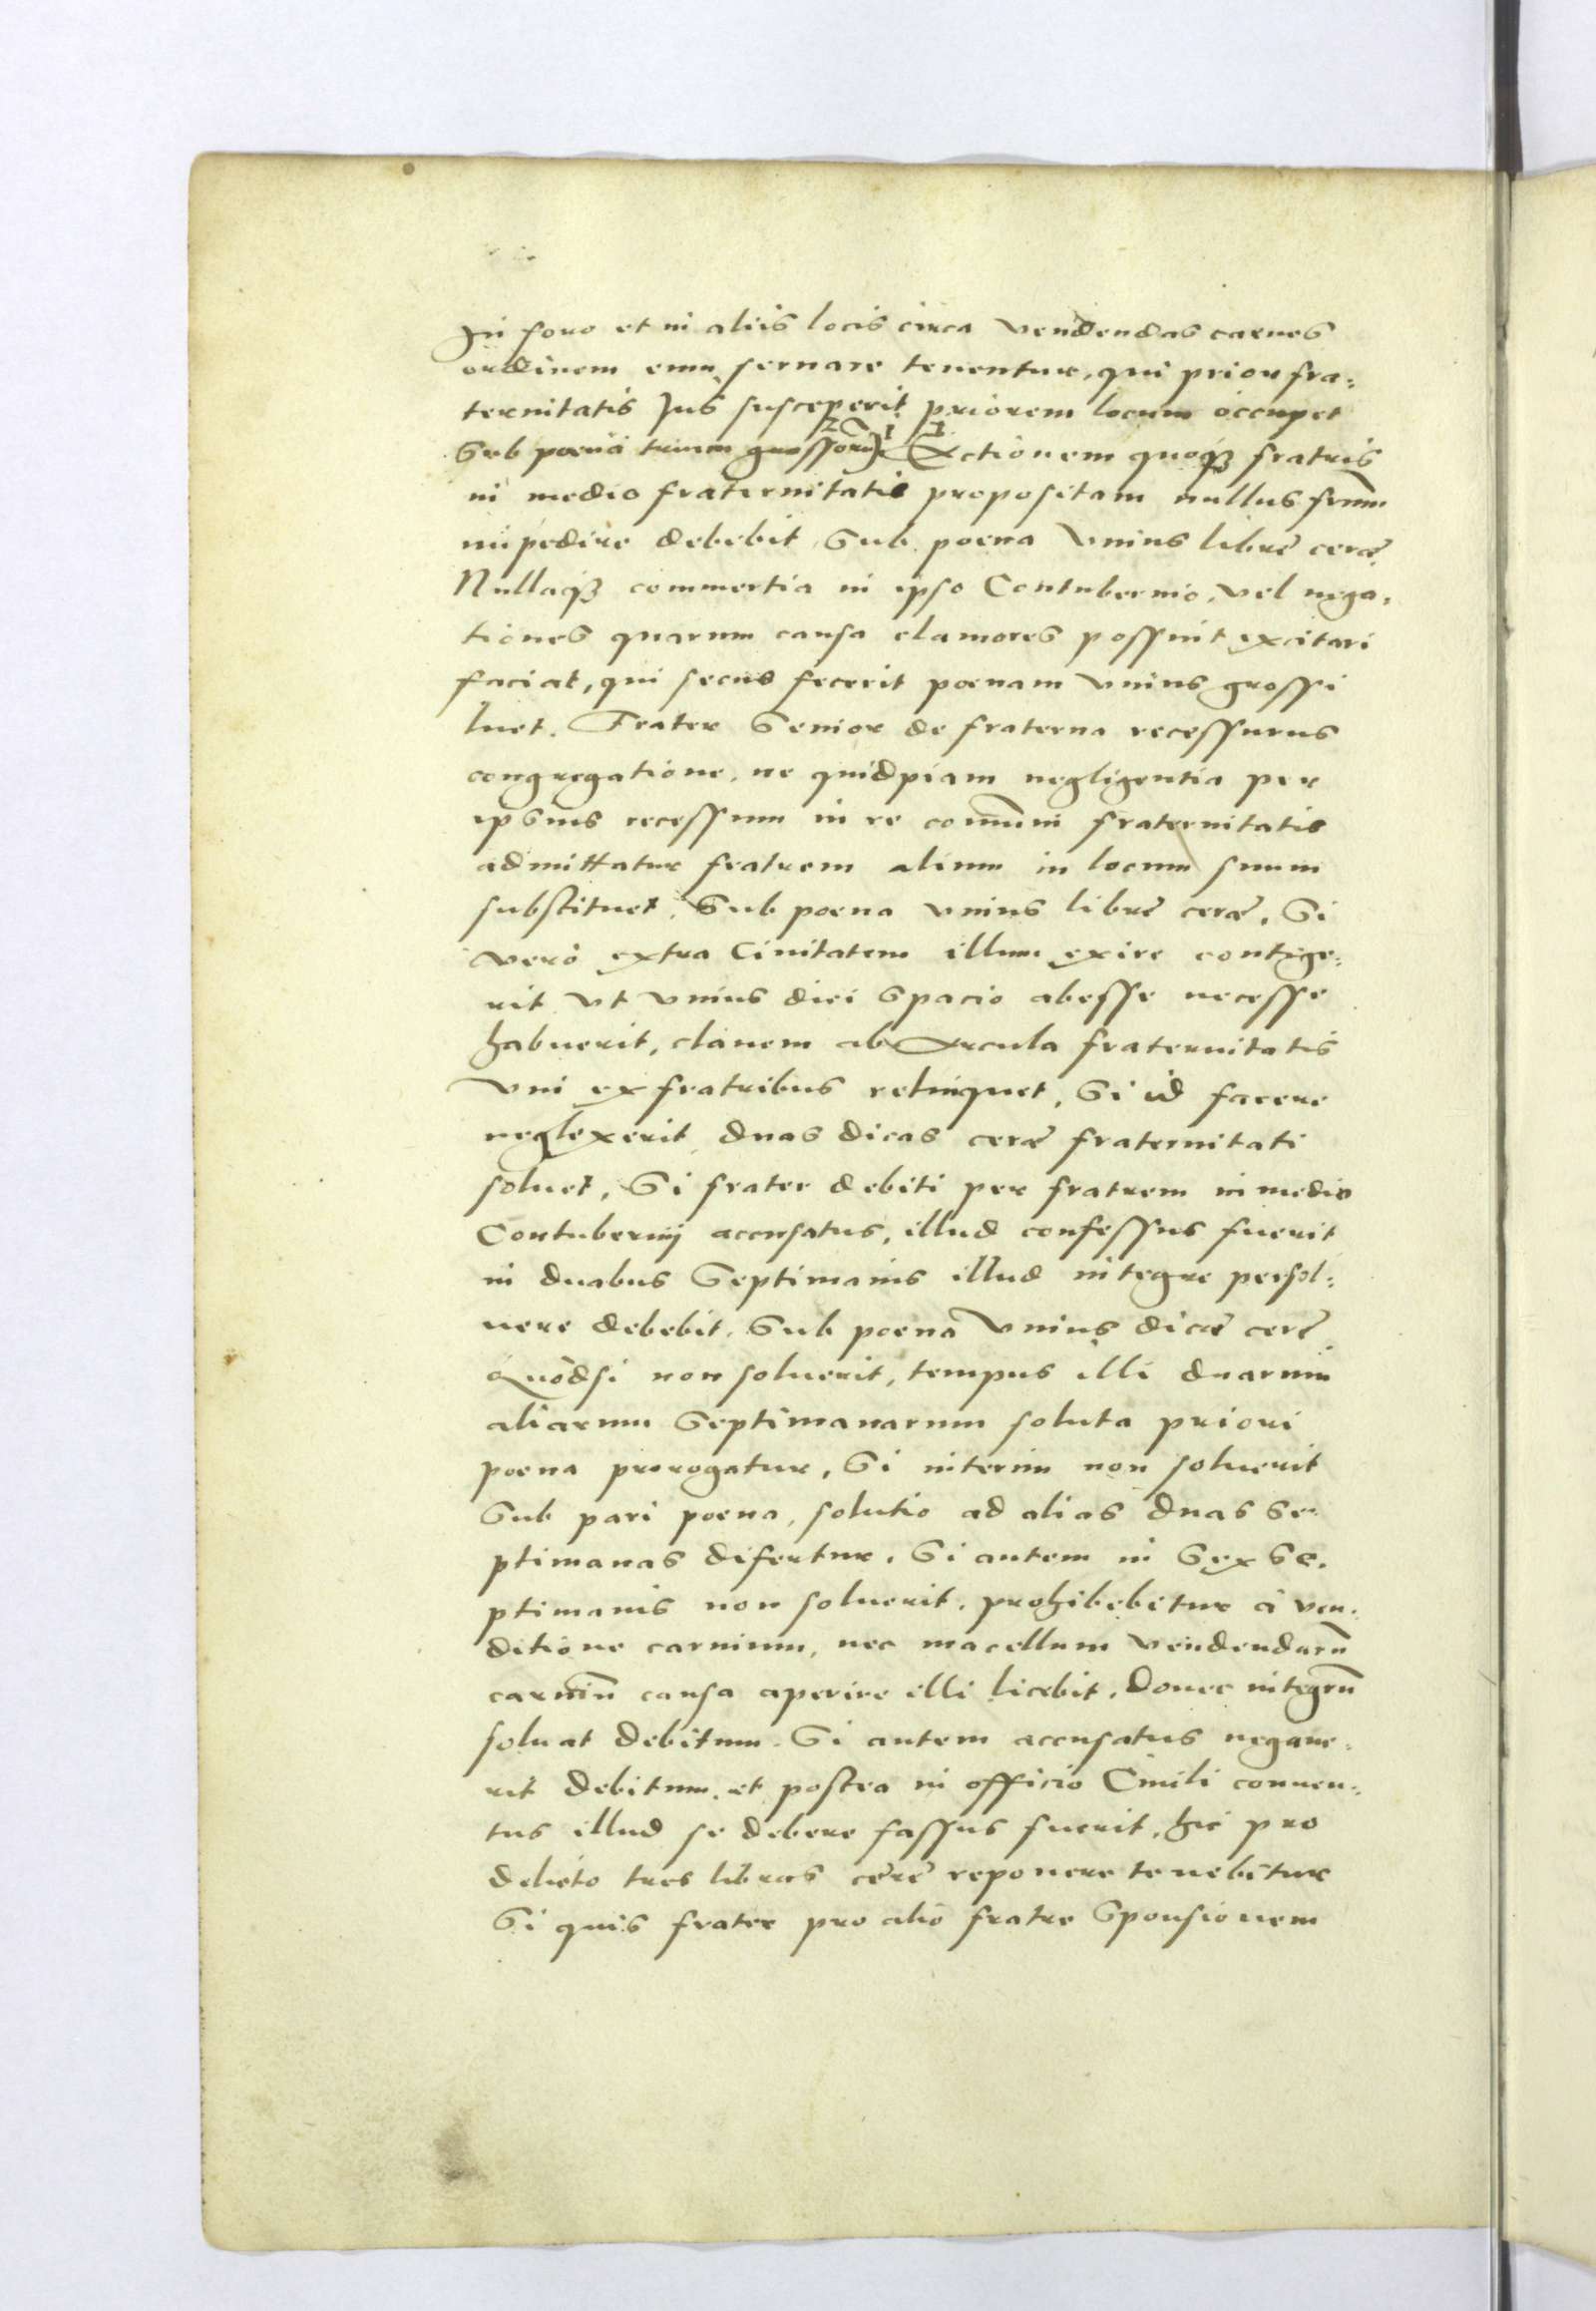 In foro et in aliis locis circa vendendas carnes
ordinem eum seruare tenentur, qui prior fra:
ternitatis Jus susceperit priorem locum occupet
Sub poena trium grossorũ. Actionem quoqȝ fratris
in medio fraternitatis propositam nullus
impedire debebit Sub poena vnius librę cerę.
Nullaqȝ commertia in ipso Contubernio, vel nega,
tiones quarum causa clamores possint excitari
faciat, qui secus fecerit poenam vnius grossi
luet. Frater Senior de fraterna recessurus
congregatione, ne quidpiam negligentia per
ipsius recessum in re com̃uni fraternitatis
admittatur fratrem alium in locum suum
substituet, Sub poena vnius librę cerę, Si
verò extra Ciuitatem illum exire contige:
rit vt vnius diei Spacio abesse necesse
habuerit, clauem ab Arcula fraternitatis
vni ex fratribus relinquet, Si id facere
neglexerit duas dicas cerę fraternitati
soluet, Si frater debiti per fratrem in medio
Contubernij accusatus, illud confessus fuerit
in duabus Septimanis illud integre persol:
uere debebit, Sub poena vnius dicę cerę
Quòdsi non soluerit, tempus illi duarum
aliarum Septimanarum soluta priori
poena prorogatur, Si interim non soluerit
Sub pari poena, solutio ad alias duas Se-
ptimanas difertur, Si autem in Sex Se,
ptimanis non soluerit, prohibebitur à ven:
ditione carnium, nec macellum vendendarũ
carniũ causa aperire illi licebit, Donec integrũ
soluat debitum. Si autem accusatus negaue:
rit debitum, et postea in officio Ciuili conuen:
tus illud se debere fassus fuerit, hic pro
delicto tres libras cerę reponere tenebitur
Si quis frater pro alio fratre Sponsionem